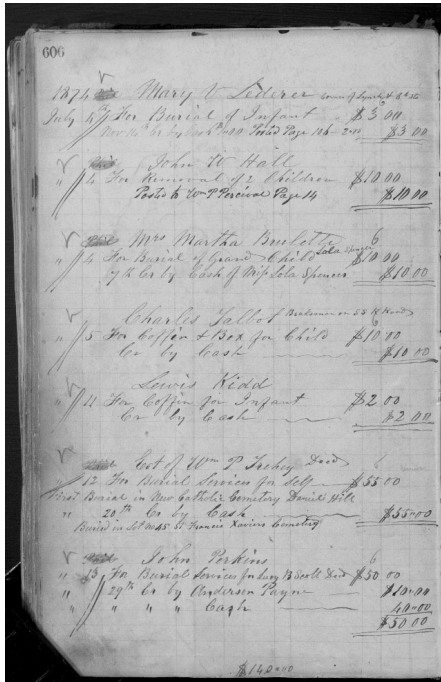 606
1874 Mary V Lederer Corner of Lynch & 8th Sts
July 4th For Burial of Infant $3 00
Nov 14th Cr by Cash Posted Page 106 $3 00
John W Hall
" 4 For Removal of 2 Children $10 00
Posted to Wm P Percival Page 14 $10 00
Mrs Martha Burlotte
" 4 For Burial of Grand Child Lola Spencer $10 00
7th Cr by Cash of Miss Lola Spencer $10 00
Charles Talbot Brakeman on SS R Road
" 5 For Coffin & Box for Child $10 00
Cr by Cash $10 00
Lewis Kidd
" 11 For Coffin for Infant $2 00
Cr by Cash $2 00
Est of Wm P Trehey Decd
" 12 For Burial Services for Self $55 00
First Burial in New Catholic Cemetery Daniel Hill
" 20th Cr by Cash $55-00
Buried in Lot No 45 St Francis Xaviers Cemetery
John Perkins
" 13 For Burial Services for Lucy B Scott Decd $50 00
" 29th Cr by Anderson Payne $10-00
" " " " Cash 40-00
$50.00
$140-00